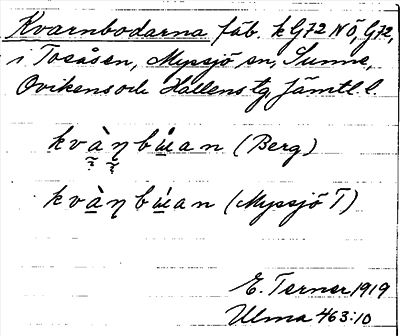 Kvarnbodarna fäb. k G72 NÖ, G72,
i Tosåsen, Myssjö sn, Sunne,
Ovikens och Hallens tg Jämtl. l.
kvàηbúan (Berg)
kvàηbúan (Myssjö T)
E. Terner 1919
Ulma 463:10